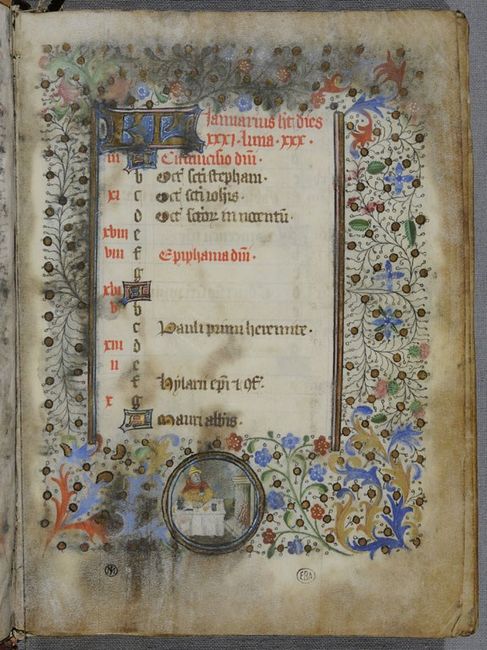 KL Januarius ht dies
XXXI · luna · xxx ·
iii A Circumcisio dni ·
b Oct sci stephani ·
xi c Oct sci iohis ·
d Oct scor innocentu ·
xviii e
viii f Epiphania dni ·
g
xvi A
v b
c Pauli primi heremite ·
xiii d
ii e
f Hylarii epi et
x g
A Mauri abbis ·
EBA